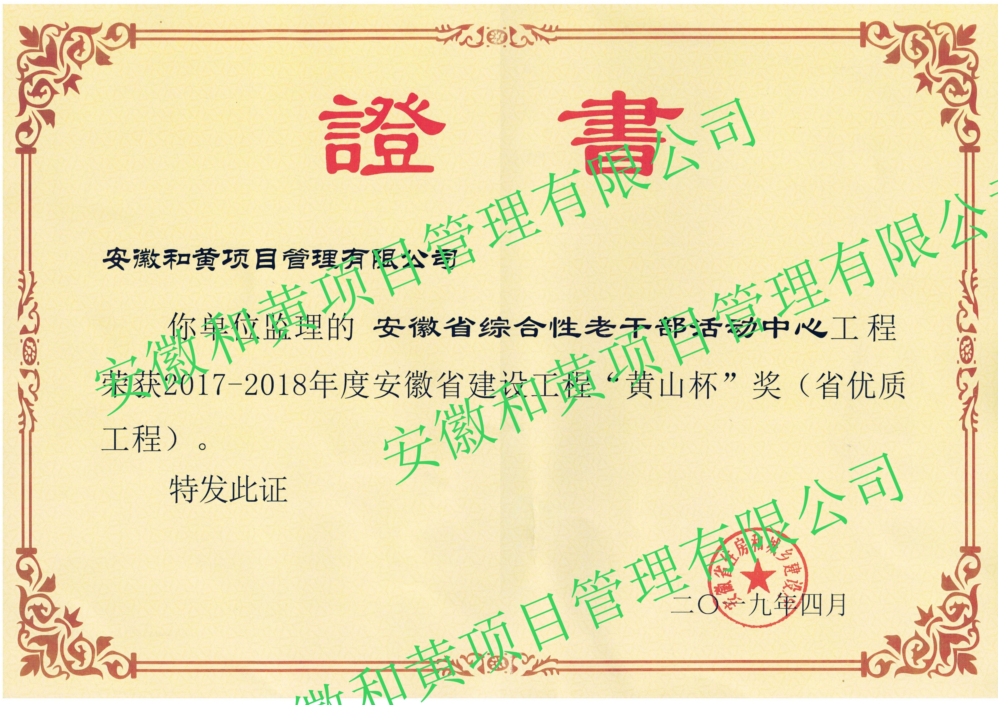 證 書
安徽和黄项目管理有限公司
你单位监理的 安徽省综合性老干部活动中心工程
荣获2017-2018年度安徽省建设工程“黄山杯”奖（省优质
工程）。
特发此证
安徽省住房和城乡建设厅
二〇一九年四月
安徽和黄项目管理有限公司
安徽和黄项目管理有限公
徽和黄项目管理有限公司